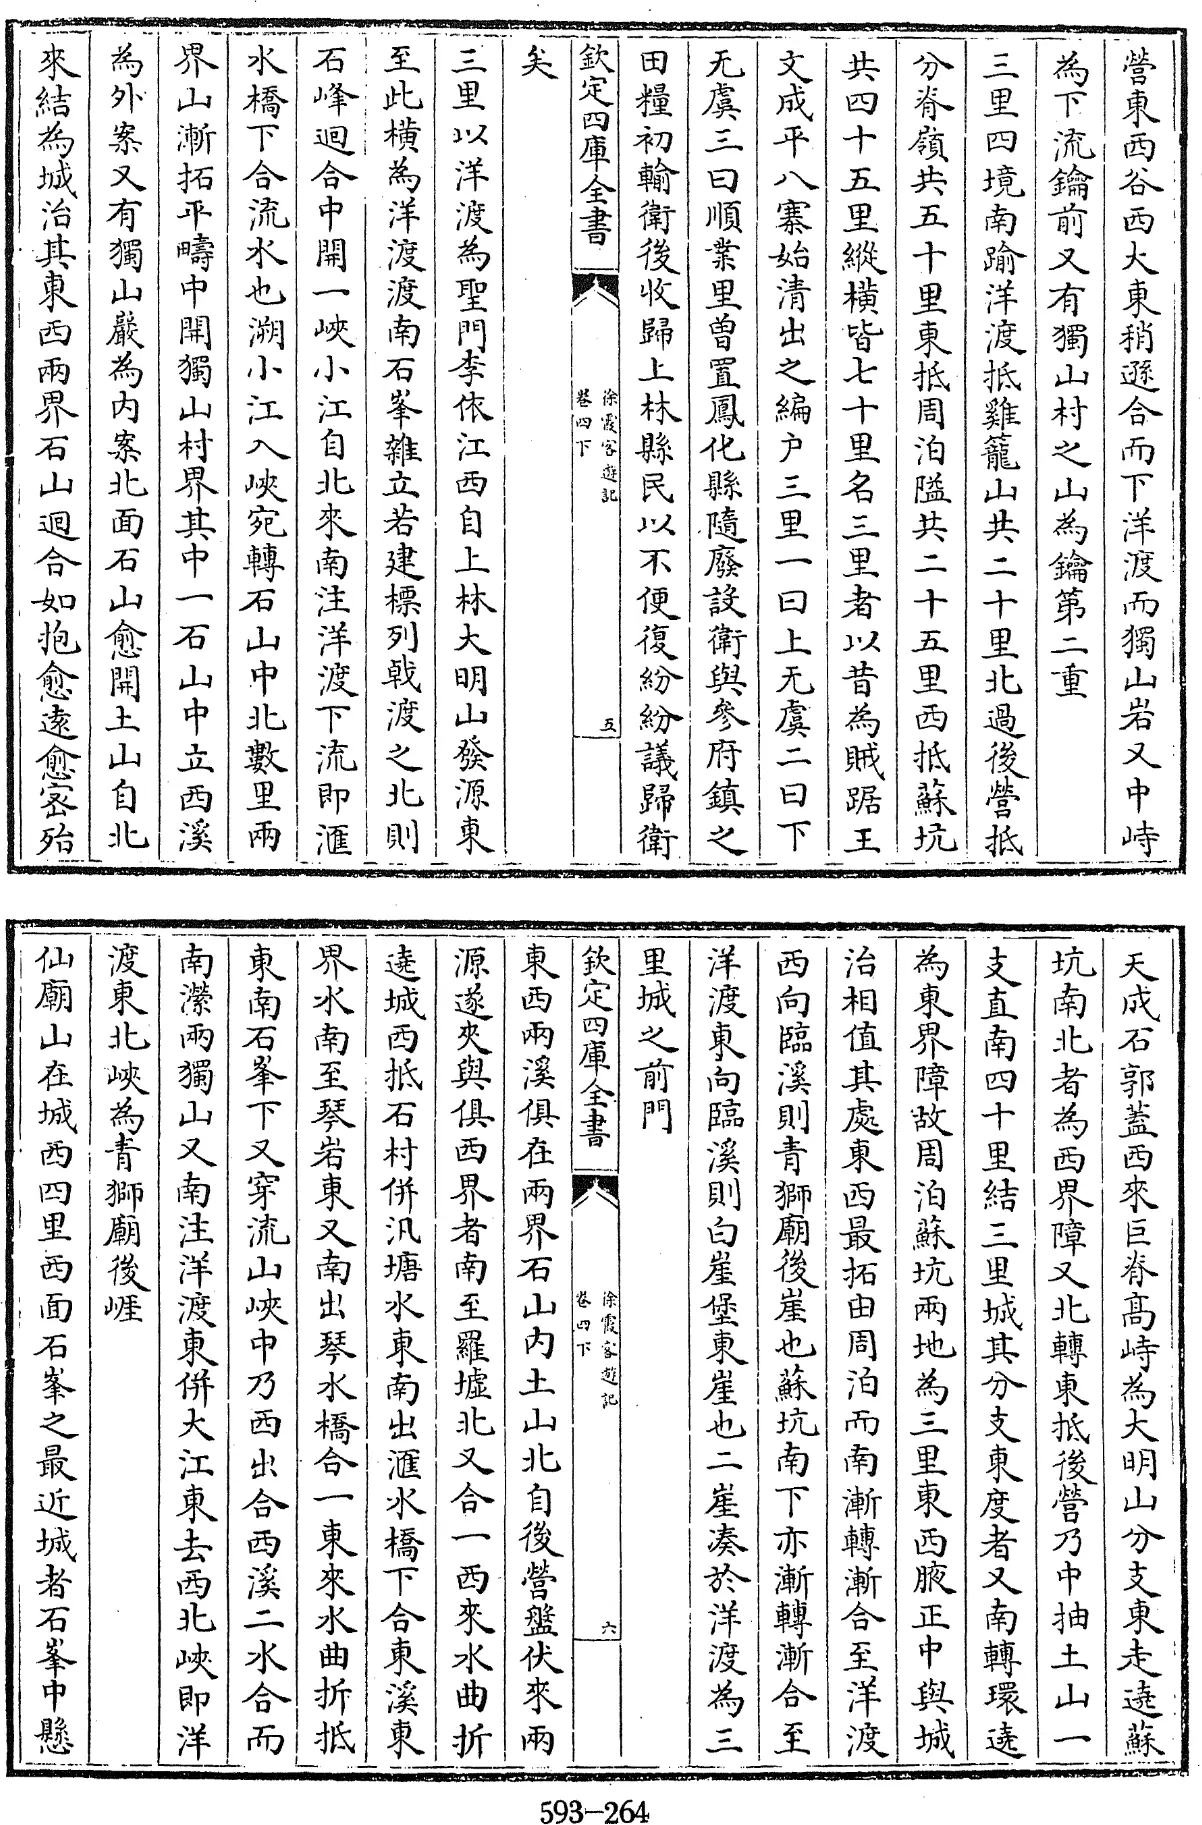 營東西谷西大東稍遜合而下洋渡而獨山岩又中峙
為下流鑰前又有獨山村之山為鑰第二重
三里四境南踰洋渡抵雞籠山共二十里北過後營抵
分脊嶺共五十里東抵周泊隘共二十五里西抵蘇坑
共四十五里縱橫皆七十里名三里者以昔為賊踞王
文成平八寨始清出之編户三里一曰上无虞二曰下
无虞三曰順業里曾置鳳化縣隨廢設衛與參府鎮之
田糧初輸衛後收歸上林縣民以不便復紛紛議歸衛
欽定四庫全書
徐霞客遊記
卷四下
五
矣
三里以洋渡為聖門李依江西自上林大明山發源東
至此橫為洋渡渡南石峯雜立若建標列戟渡之北則
石峰迴合中開一峽小江自北來南注洋渡下流即滙
水橋下合流水也溯小江入峽宛轉石山中北數里兩
界山漸拓平疇中開獨山村界其中一石山中立西溪
為外案又有獨山巖為内案北面石山愈開土山自北
來結為城治其東西兩界石山迴合如抱愈遠愈密殆
天成石郭蓋西來巨脊髙峙為大明山分支東走遶蘇
坑南北者為西界障又北轉東抵後營乃中抽土山一
支直南四十里結三里城其分支東度者又南轉環遶
為東界障故周泊蘇坑兩地為三里東西腋正中與城
治相值其處東西最拓由周泊而南漸轉漸合至洋渡
西向臨溪則青獅廟後崖也蘇坑南下亦漸轉漸合至
洋渡東向臨溪則白崖堡東崖也二崖凑於洋渡為三
里城之前門
欽定四庫全書
徐霞客遊記
卷四下
六
東西兩溪俱在兩界石山内土山北自後營盤伏來兩
源遂夾與俱西界者南至羅墟北又合一西來水曲折
遶城西抵石村併汎塘水東南出滙水橋下合東溪東
界水南至琴岩東又南出琴水橋合一東來水曲折抵
東南石峯下又穿流山峽中乃西出合西溪二水合而
南瀠兩獨山又南注洋渡東併大江東去西北峽即洋
渡東北峽為青獅廟後崕
仙廟山在城西四里西面石峯之最近城者石峯中懸
593-264